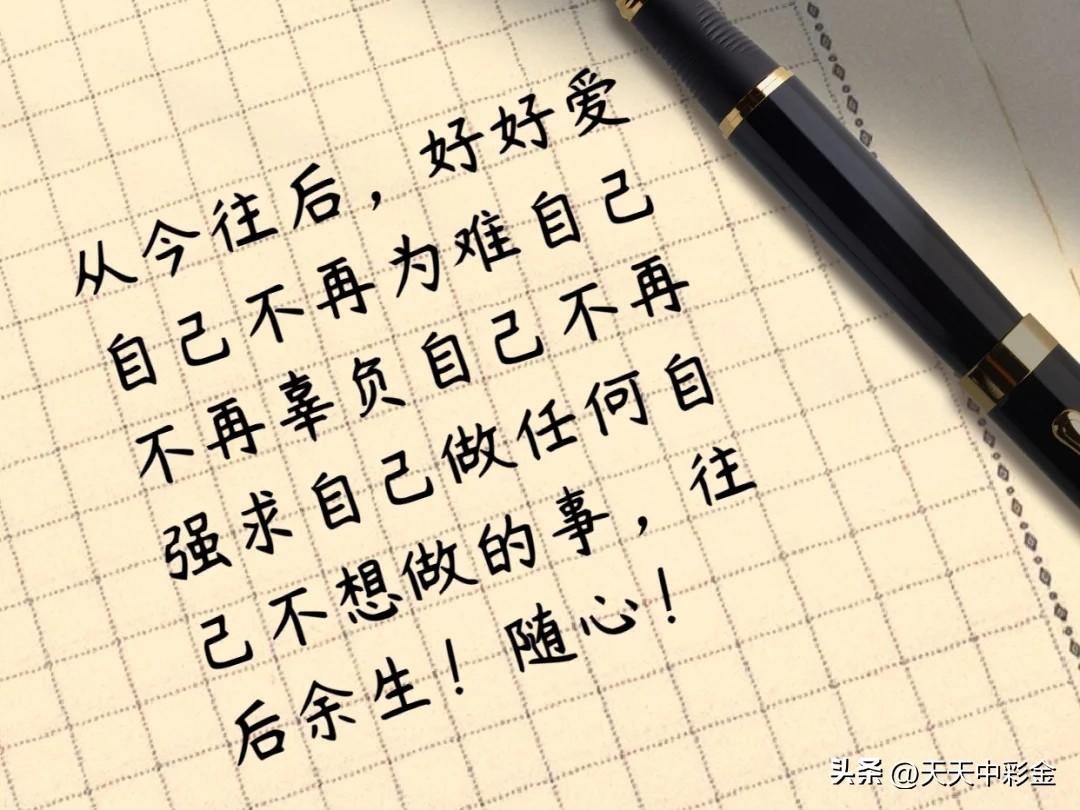 从今往后，好好爱
自己不再为难自己
不再辜负自己不再
强求自己做任何自
己不想做的事，往
后余生！随心！
头条 @天天中彩金